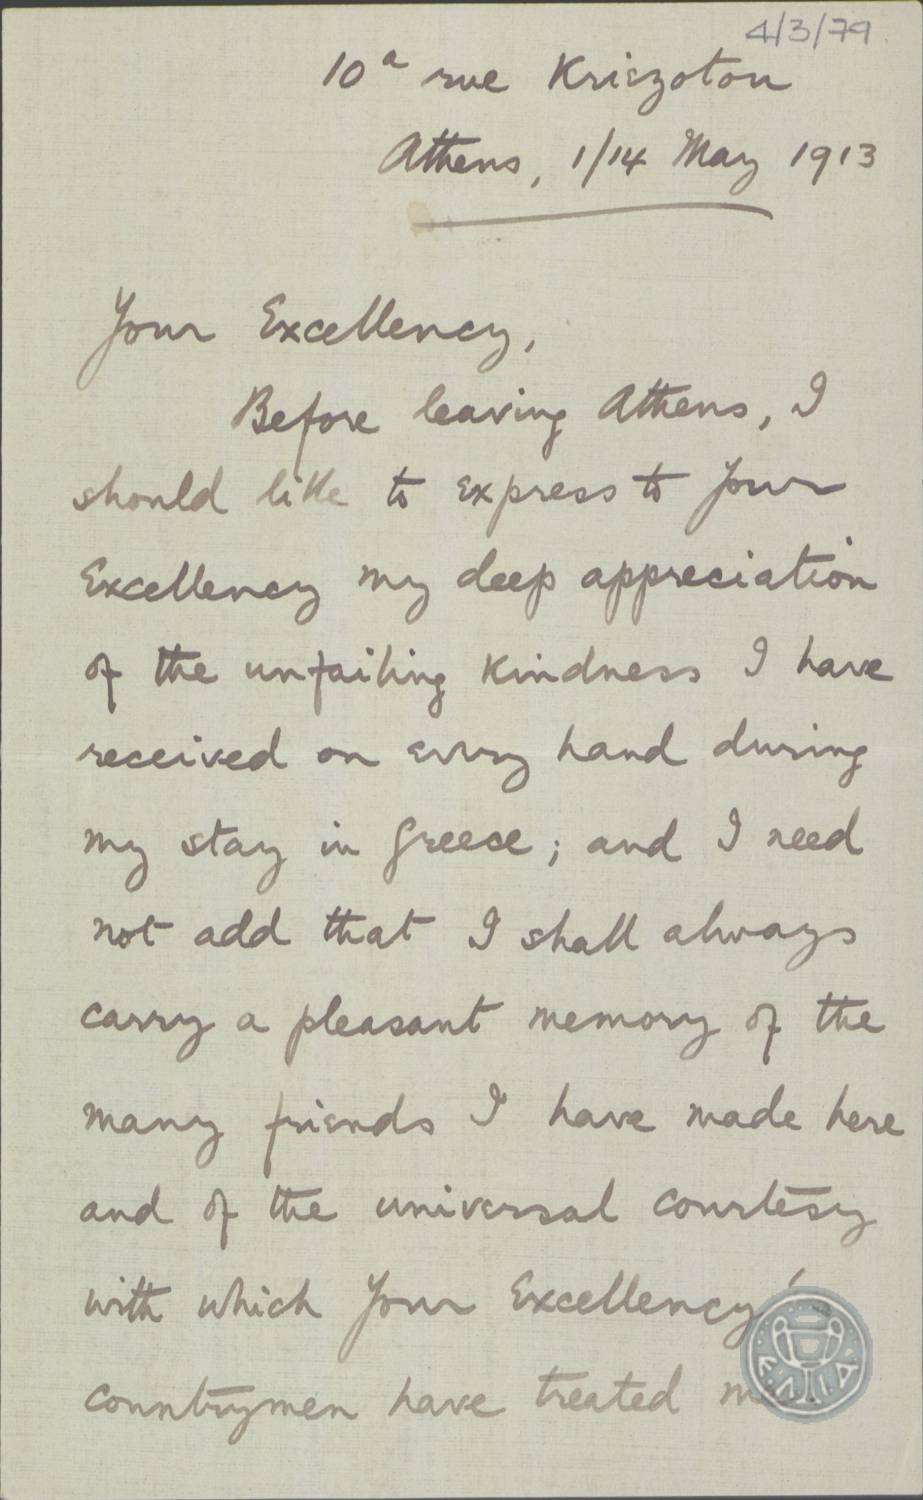 4/3/79
10ª rue Kriezotou
Athens, 1/14 May 1913
Your Excellency,
Before leaving Athens, I
should like to express to Your
Excellency my deep appreciation
of the unfailing kindness I have
received on every hand during
my stay in Greece; and I need
not add that I shall always
carry a pleasant memory of the
many friends I have made here
and of the universal courtesy
with which Your Excellency's
countrymen have treated me.
Ε.Λ.Ι.Α